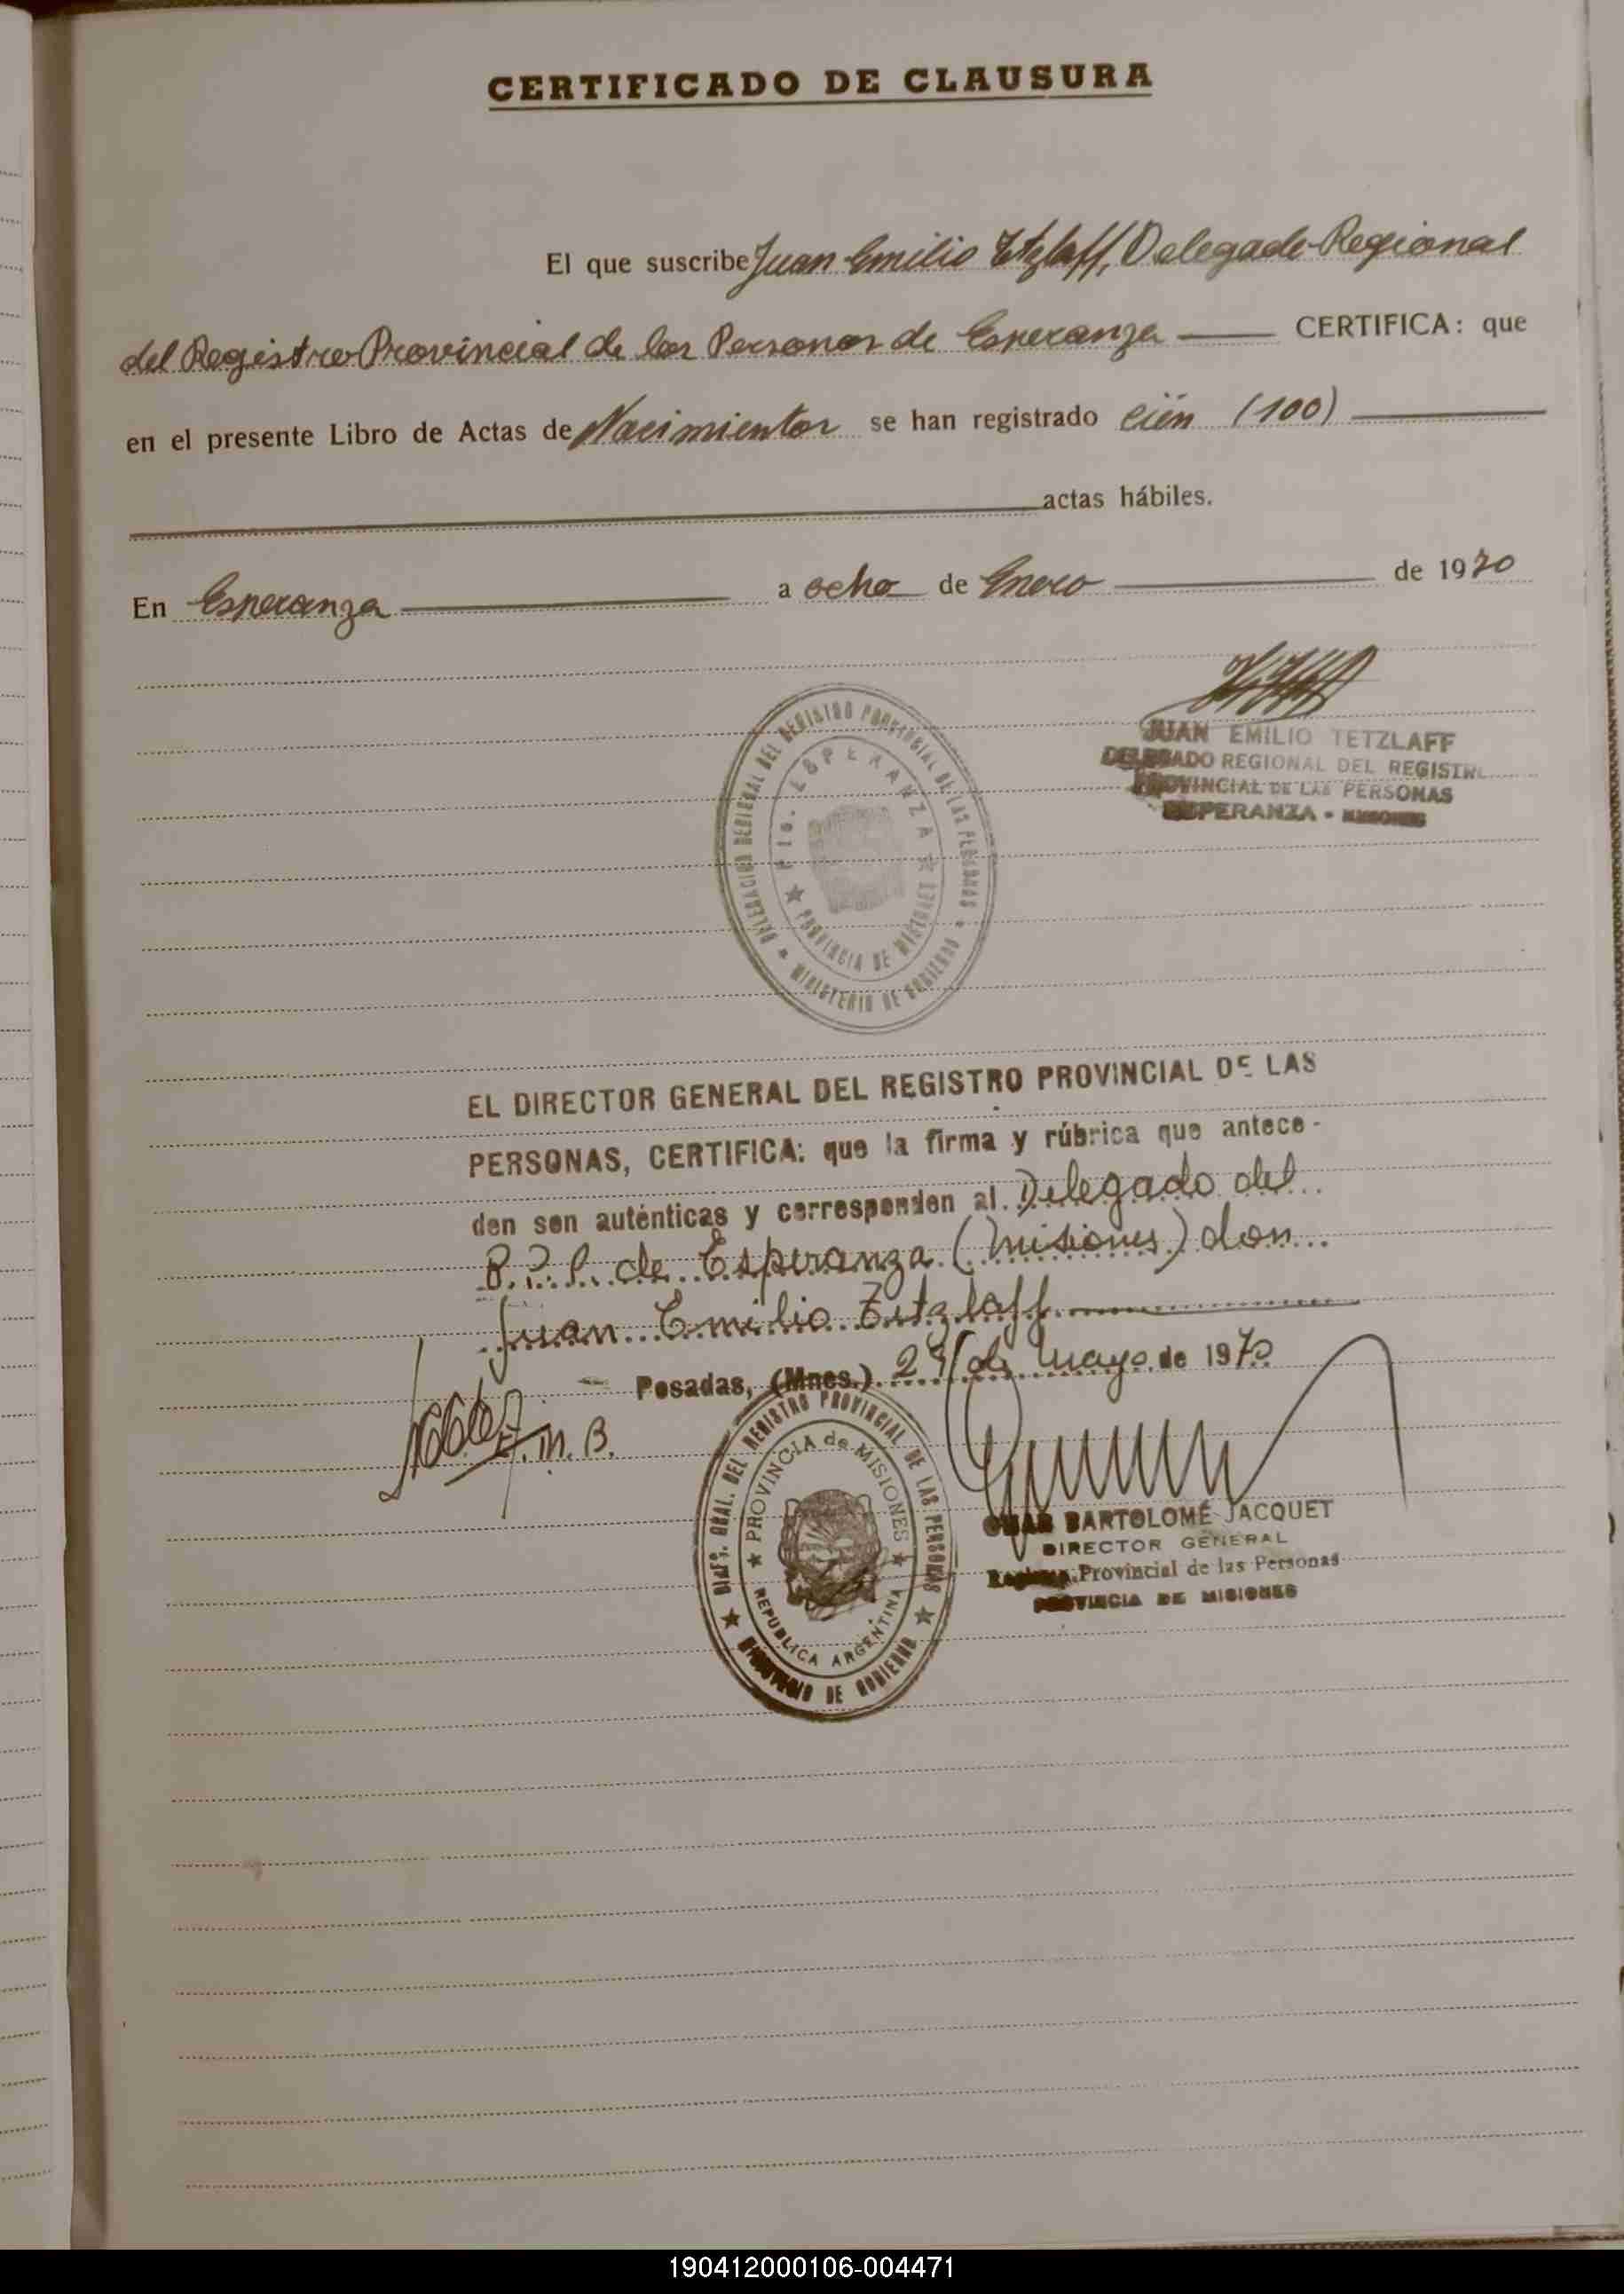 CERTIFICADO DE CLAUSURA
El que suscribe Juan Emilio Tetzlaff, Delegado Regional
del Registro Provincial de las Personas de Esperanza CERTIFICA: que
en el presente Libro de Actas de Nacimientos se han registrado cién (100)
actas hábiles.
En Esperanza a ocho de Enero de 1970
DELEGACION REGIONAL DEL REGISTRO PROVINCIAL DE LAS PERSONAS
Pto. ESPERANZA
PROVINCIA DE MISIONES
MINISTERIO DE GOBIERNO
JUAN EMILIO TETZLAFF
DELEGADO REGIONAL DEL REGISTRO
PROVINCIAL DE LAS PERSONAS
ESPERANZA - MISIONES
EL DIRECTOR GENERAL DEL REGISTRO PROVINCIAL DE LAS
PERSONAS, CERTIFICA: que la firma y rúbrica que antece-
den son auténticas y corresponden al Delegado del
R.P.P. de Esperanza (Misiones) don
Juan Emilio Tetzlaff
Posadas, (Mnes.) de Mayo de 1970
M.B.
DIRC. GRAL. DEL REGISTRO PROVINCIAL DE LAS PERSONAS
PROVINCIA de MISIONES
REPUBLICA ARGENTINA
MINISTERIO DE GOBIERNO
OMAR BARTOLOMÉ JACQUET
DIRECTOR GENERAL
Registro Provincial de las Personas
PROVINCIA DE MISIONES
190412000106-004471